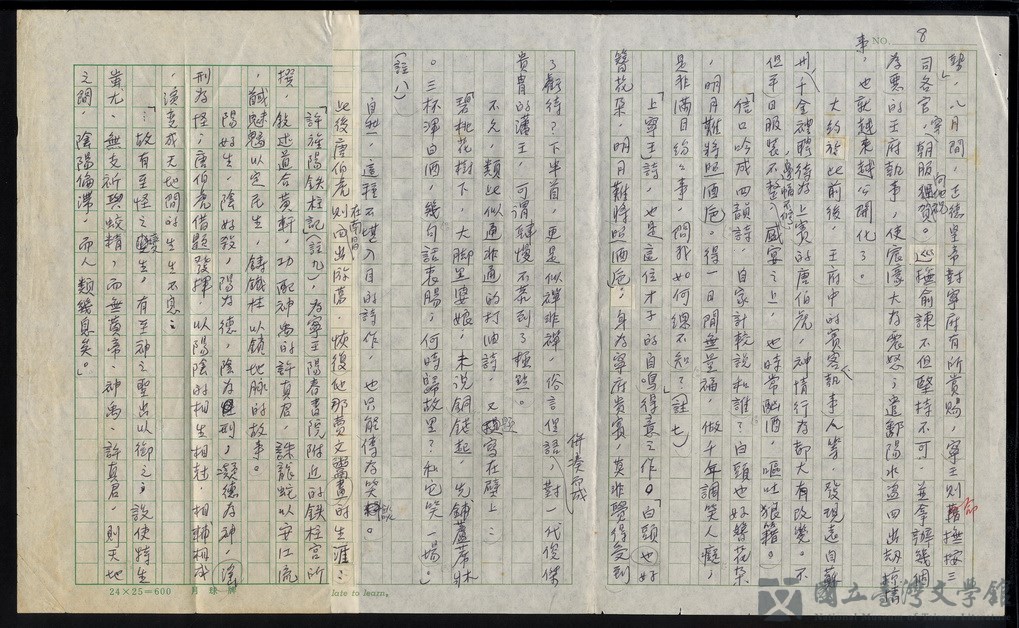 NO. 8
事,也就越來越公開化了。
八月間,正德皇帝對寧府有所賞賜,寧王則命撫按三
司各官,朝服
為惡的王府執事,使宸濠大為震怒;遣鄱陽水盜四出劫掠
大約於此前後,王府中的賓客、執事人等,發現遠自蘇
州,千金禮聘待為上賓的唐伯虎,神情行為都大有改變。不
但平日服裝不整,盛宴之上,也時常酗酒,嘔吐狼籍。
「信口吟成四韻詩,自家計較說和誰?白頭也好簪花朵
,明月難將照酒卮。得一日閒無量福,做千年調笑人癡,
是非滿日紛紛事,問我如何總不知?」(註七)
「上寧王」詩,也是這位才子的自鳴得意之作。「白頭也好
簪花朵,明月難將照酒卮」,身為寧府貴賓,莫非覺得受到
了虧待?下半首,更是似禪非禪,俗言俚語,併湊而成,對一代俊傑
貴胄的藩王,可謂輕慢不恭到了極點。
不久,類此似通非通的打油詩,又題寫在壁上:
「碧桃花樹下,大腳黑婆娘,未說銅錢起,先鋪蘆蓆牀
。三杯渾白酒,幾句話衷腸,何時歸故里?和它笑一場。」
(註八)
自然,這種不堪入目的詩作,也只能傳為笑談。
此後唐伯虎則在南昌四出放蕩,恢復他那賣文鬻畫的生涯:
「許旌陽鐵柱記」(註九),為寧王陽春書院附近的鐵柱宮所
撰,敘述道合黃軒,功配神禹的許真君,誅龍蛇以安江流
,馘魑魅以定民生,鑄鐵柱以鎖地脈的故事。
陽好生,陰好殺,陽為德,陰為刑,凝德為神,淫
刑為怪;唐伯虎借題發揮,以陽陰的相生相剋,相輔相成
,演變成天地間的生生不息:
「故有至怪之變生,有至神之聖出以御之;設使特生
蚩尤、無支祈與蛟精,而無黃帝、神禹、許真君,則天地
之間,陰陽倫滯,而人類幾息矣。」
24×25=600 月球牌
late to learn.
國立臺灣文學館